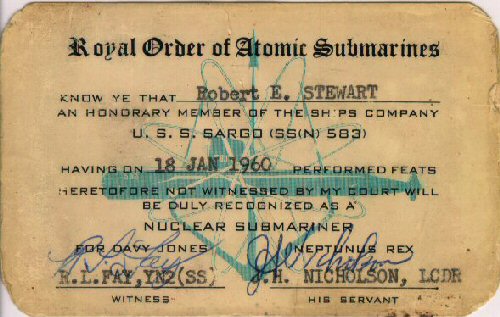 Royal Order of Atomic Submarines
KNOW YE THAT Robert E. STEWART
AN HONORARY MEMBER OF THE SHIPS COMPANY
U. S. S. SARGO (SS(N) 583)
HAVING ON 18 JAN 1960 PERFORMED FEATS
HERETOFORE NOT WITNESSED BY MY COURT WILL
BE DULY RECOGNIZED AS A
NUCLEAR SUBMARINER
FOR DAVY JONES NEPTUNUS REX
R.L.FAY, YN2(SS) J.H. NICHOLSON, LCDR
WITNESS HIS SERVANT